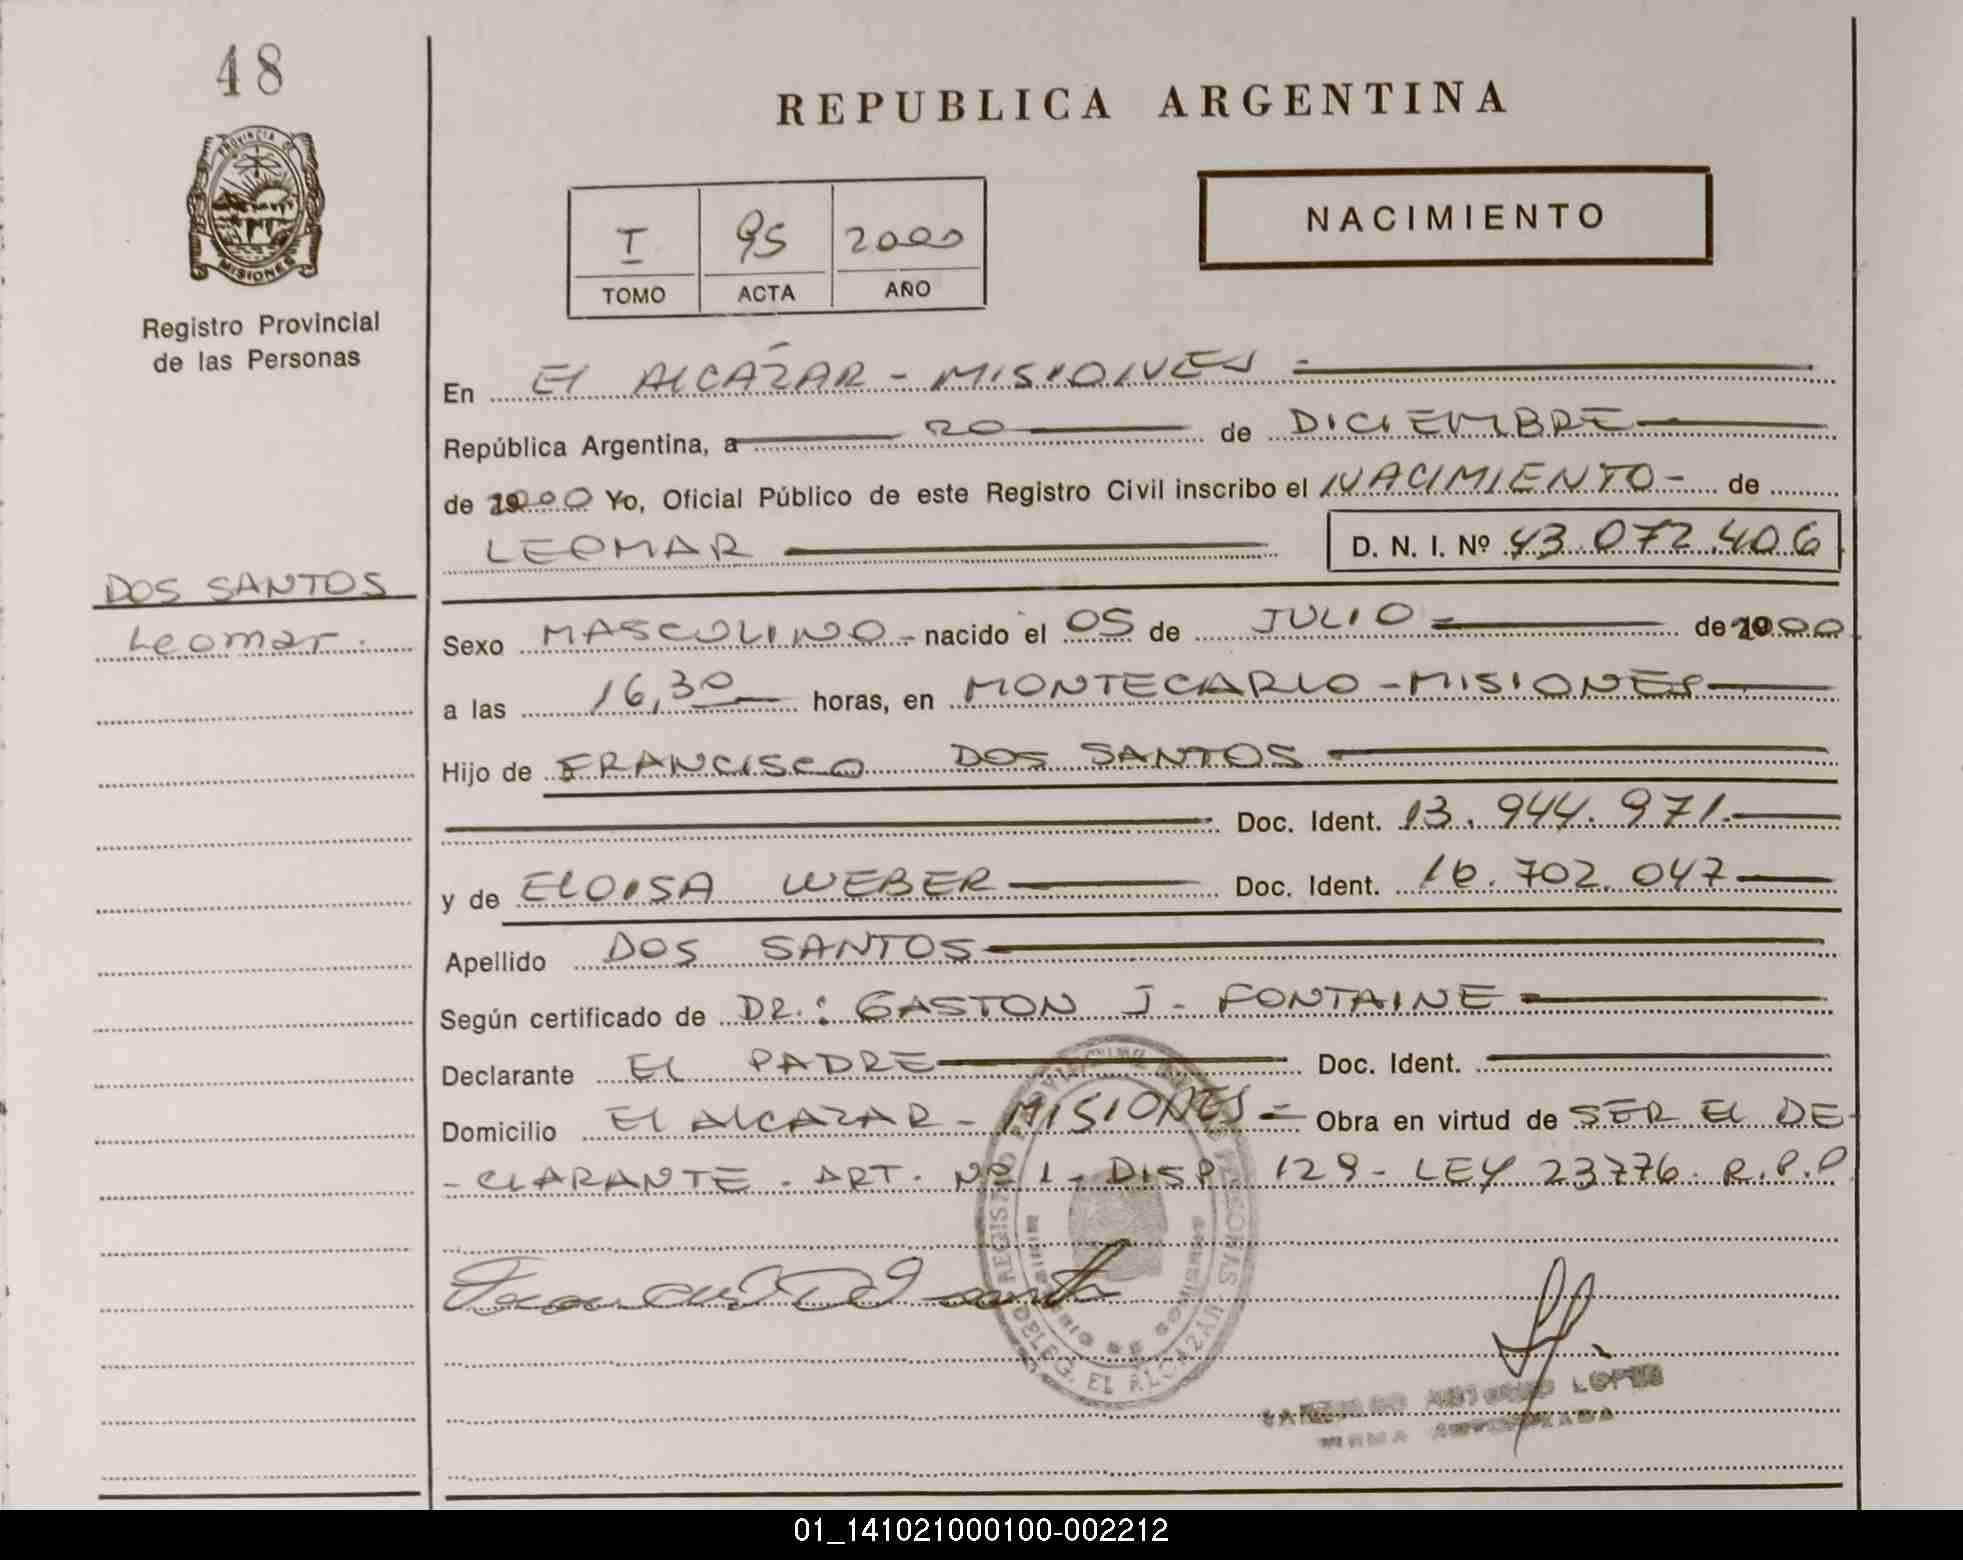 48
PROVINCIA DE
MISIONES
Registro Provincial
de las Personas
REPUBLICA ARGENTINA
I 95 2000
TOMO ACTA AÑO
NACIMIENTO
En El ALCÁZAR - MISIONES -
República Argentina, a 20 de DICIEMBRE
de 2000 Yo, Oficial Público de este Registro Civil inscribo el NACIMIENTO - de
LEOMAR D. N. I. Nº 43.072.406
DOS SANTOS
Leomar.
Sexo MASCULINO - nacido el 05 de JULIO de 2000
a las 16,30 horas, en MONTECARLO - MISIONES
Hijo de FRANCISCO DOS SANTOS
Doc. Ident. 13.944.971.
y de ELOISA WEBER Doc. Ident. 16.702.047
Apellido DOS SANTOS
Según certificado de DR.: GASTON J. FONTAINE
Declarante EL PADRE Doc. Ident.
Domicilio El AlCAZAR - MISIONES - Obra en virtud de SER EL DE-
-CLARANTE. ART. Nº 1 - DISP. 129 - LEY 23776. R.P.P
DELEG. EL ALCAZAR
ANTONIO LOPEZ
01_141021000100-002212